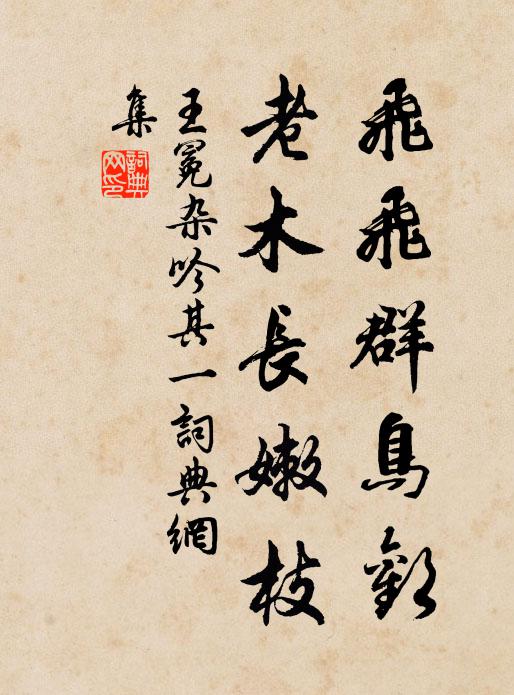 飛飛群鳥歡
老木長嫩枝
王冕杂吟其一詞典網
集
詞典网印